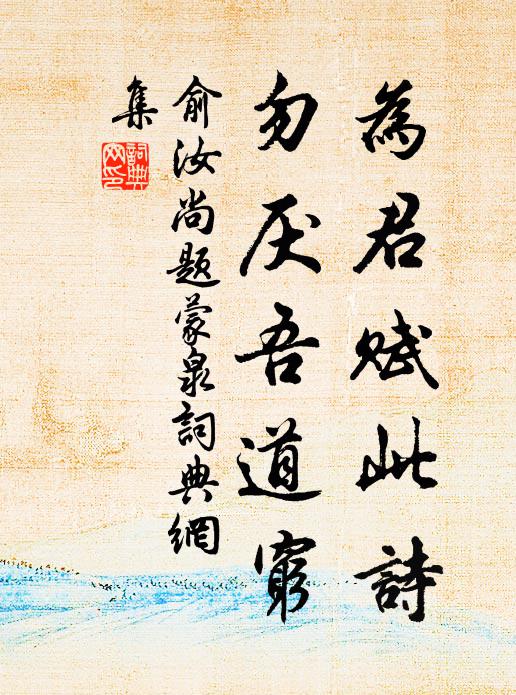 為君賦此詩
勿厌吾道窮
俞汝尚題蒙泉詞典網
集
詞典網印